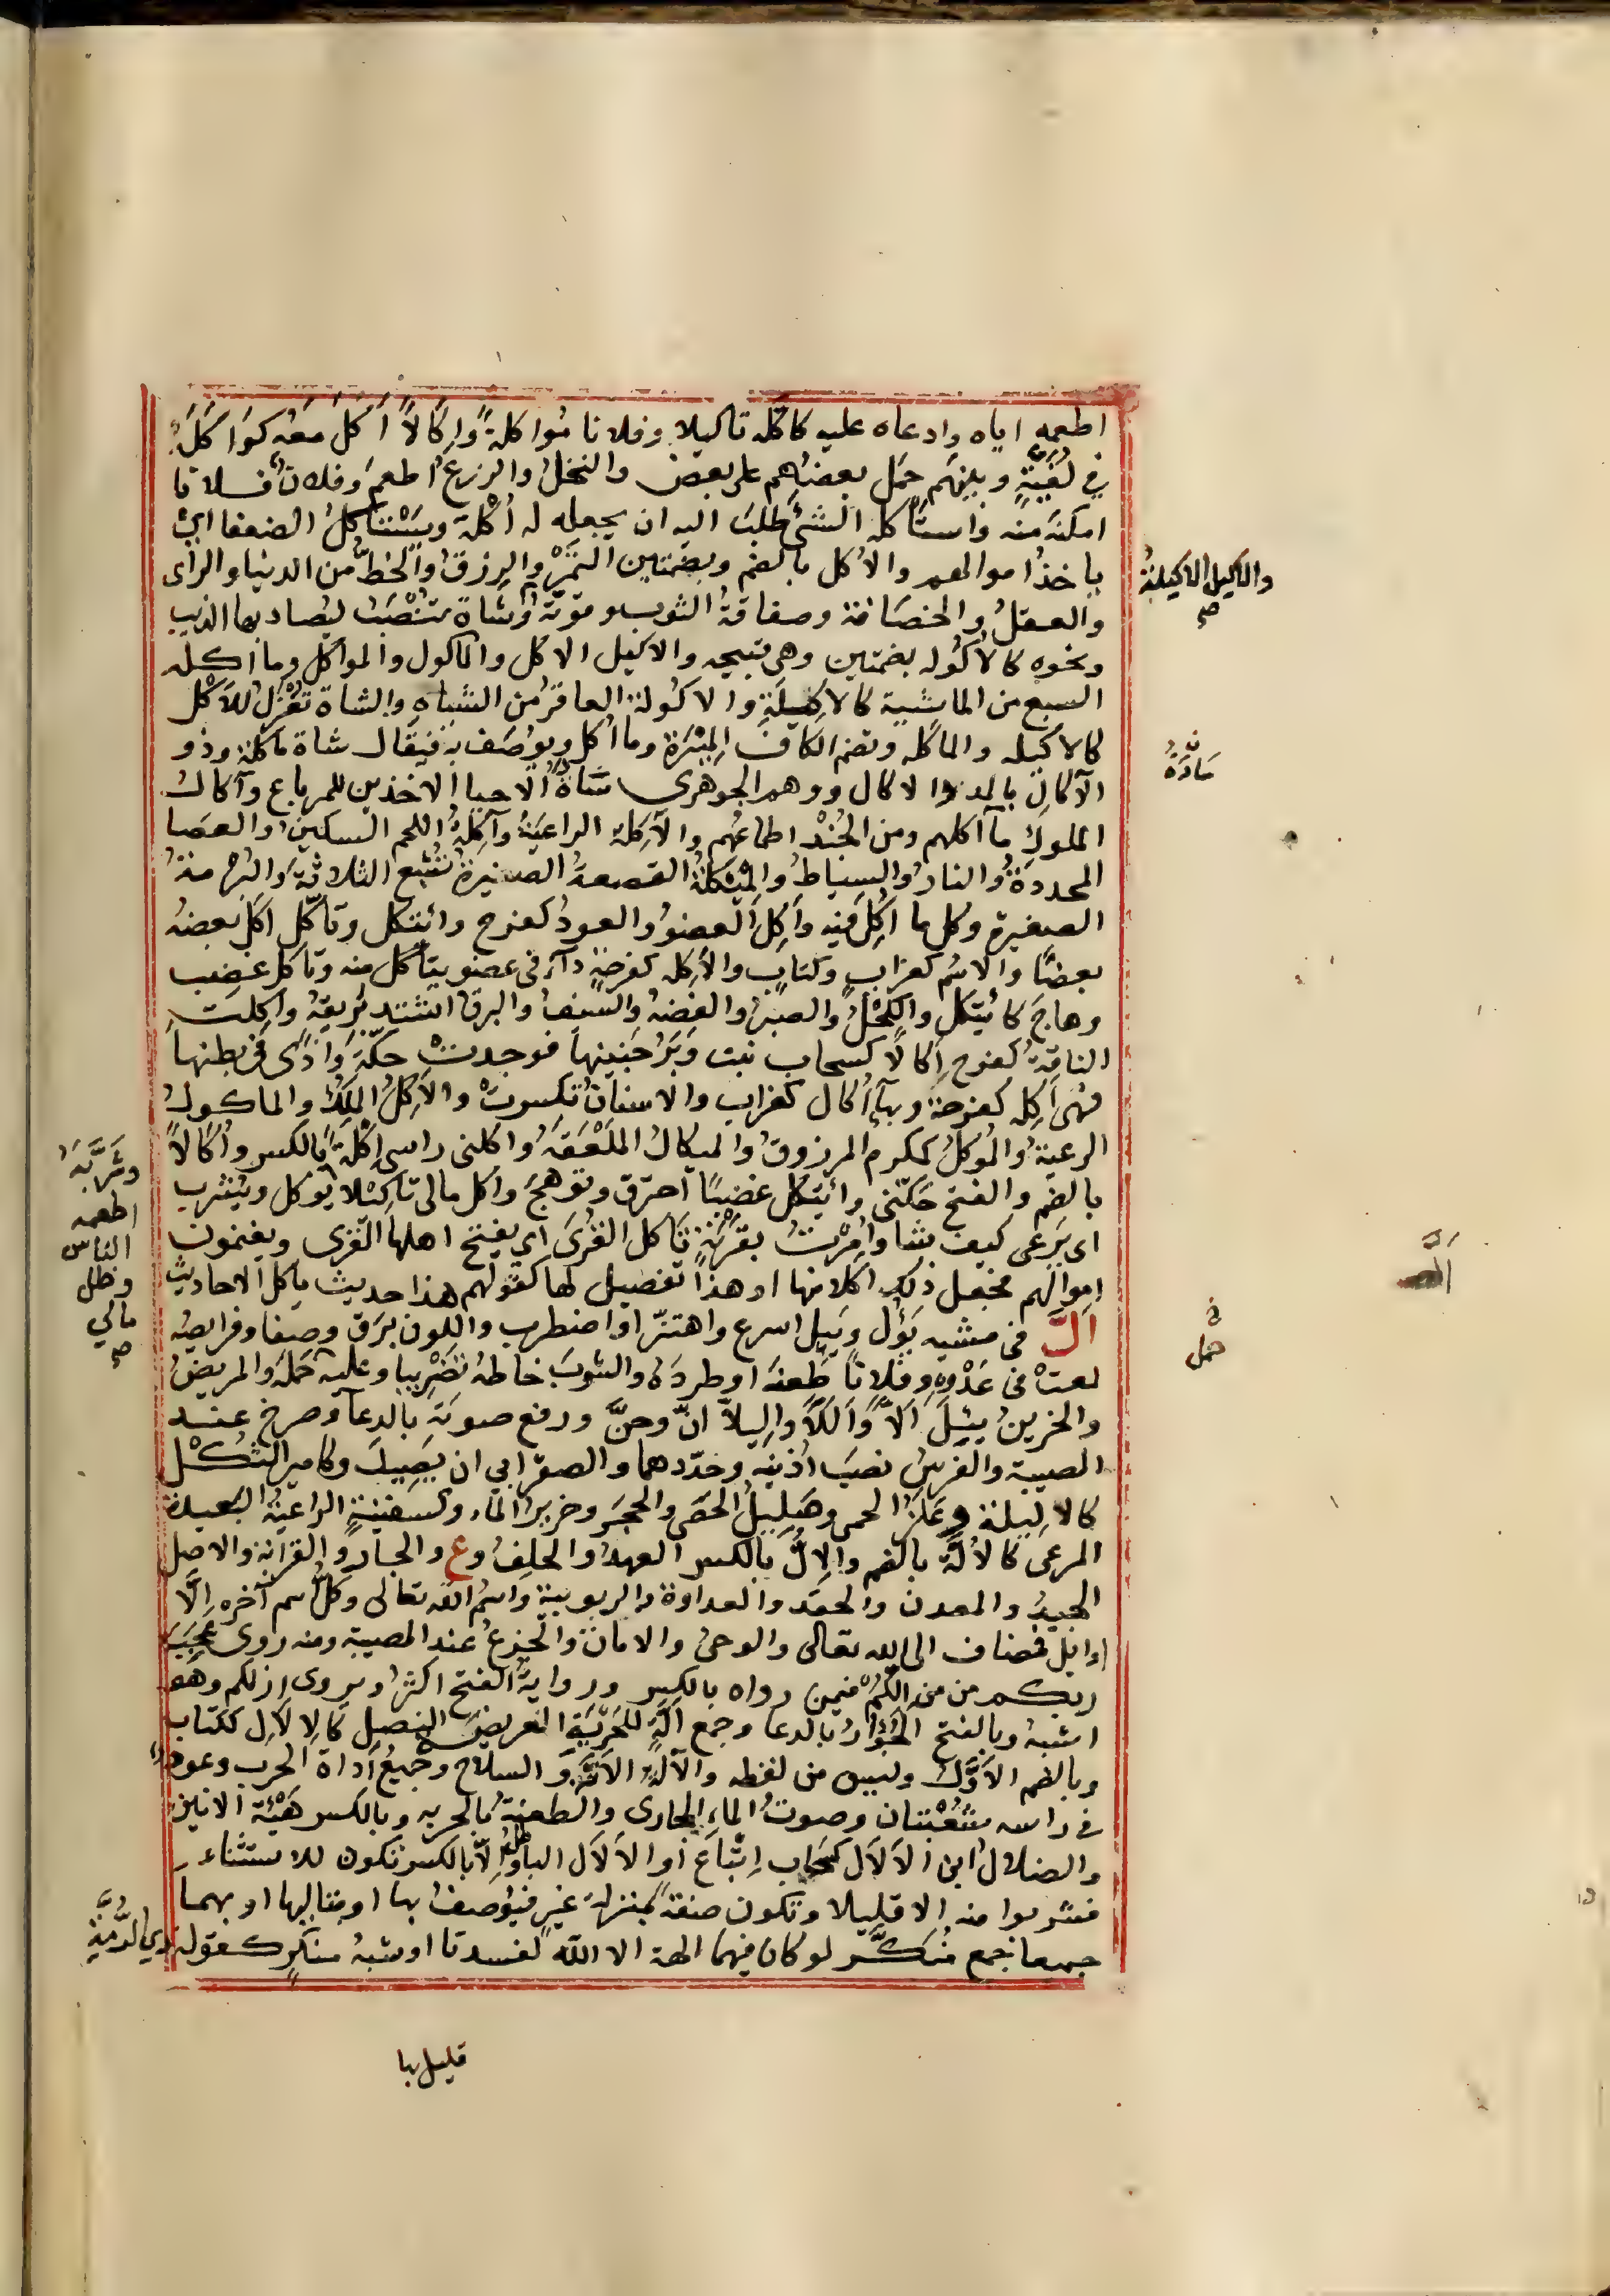 اطعمه اياه وادعاه عليه كاكله تاكيلا وفلانا مُواكلةً وَاِكَالاً اَكَلَ مَعَه كَوَاكَلَهُ
في لُغَيّةٍ وبينهم حَمَل بعضَهم على بعض والنخلُ والزرعُ اطعمَ وفلانٌ فلانا
امكنه منه واستأكله الشئَ طلبَ اليه ان يجعله له اُكْلَةً ويَسْتَأكِلُ الضعفا اي
ياخذُ اموالهم والاُكل بالضم وبضمتين التمرُ والرزقُ والحظُّ من الدنيا والراى
والعقلُ والحَصَافة وصفاقةُ الثوب وقوّتهُ وشاةٌ تُنْصَبُ ليُصاد بها الذيب
ونحوه كالاُكُوله بضمتين وهى قبيحه والاكيل الاكل والماكول والمواكل وما اكله
السبع من الماشية كالاكِيلَةِ والاكُولة العاقرُ من الشياه والشاة تُعْزَلُ للاَكْل
كالاكيله والماكله وتضم الكاف المِيْرَة وما اُكل ويوصَف به فيقال شاة ماكلة وذوو
الآكالِ بالمد لا الاكال ووهم الجوهرى سَادَةُ الاحيا الاخذين للمرباع وآكال
الملوكِ مآكلهم ومن الجُنْد اطماعُهم والآكِلة الراعيَةُ وآكِلةُ اللحم السكينُ والعصا
المحددةُ والنارُ والسياطُ والمِئكَلةُ القصعة الصغيرةُ تُشبِع الثلاثةَ والبُرمةُ
الصغيرة وكل ما اُكِلَ فيه واَكِلَ العضوُ والعودُ كفرح وائتكل وتاكّل اكل بعضه
بعضًا والاسم كغراب وكتاب والاَكِله كفرحةٍ داءٌ فى عضو يتأكل منه وتاكل غضب
وهاجَ كائتكل والكُحْلُ والصبرُ والفضةُ والسيفُ والبرقُ اشتد بَريقه واكِلت
الناقةُ كفرح اَكَالاً كسحاب نبت وَبَرُ جنينها فوجدت حكّةً واَذًى فى بطنها
فهى اَكِله كفرحة وبها اُكال كغراب والاسنانُ تكسرتْ والآكِلُ المَلِكُ والماكول
الرعيّةُ والمُوكَلُ كمكرم المرزوق والميكالُ المِلْعَقَةُ واكلنى راسى اِكْلَةً بالكسر واُكالاً
بالضم والفتح حَكّنى وائتكل غضبًا احترق وتوهجَ واكّل مالى تاكيلا يوكل ويشرب
اى يَرعى كيف شا واُمِرْتُ بقَرْيَةٍ تَاكل القُرَى اى يفتح اهلها القرى ويغنمون
اموالهم فجعل ذلك اكلا منها او هذا تفضيل لها كقولهم هذا حديث ياكل الاحاديث
اَلَّ فى مشيه يَؤُل ويَئِل اسرع واهتزّ او اضطرب واللون بَرق وصفا وفرايصُه
لمعتْ فى عَدْوِهِ وفلانًا طَعنَه او طردَه والثوبَ خاطه تَضْرِيبا وعليه حَمَلَه والمريضُ
والحزينُ يَئِلّ اَلاًّ واَلَلاً واَلِيلاً انّ وحنَّ ورفع صوتَه بالدعا وصرخ عند
المصيبة والفرسُ نصبَ اُذنيه وحدّدهما والصقر ابى ان يَصِيدَ وكامير الثُكْل
كالاَلِيلة وعَلَزُ الحمى وصَلِيلُ الحَصَى والحجَرِ وخريرُ الماء وكسفينةٍ الراعيةُ البعيدة
المرعى كالاُلّة بالضم والاِلُّ بالكسر العهدُ والحلِفُ وع والجارُ والقرابةُ والاصل
الجيدُ والمعدن والحقد والعداوة والربوبية واسم الله تعالى وكل اسم آخره اِلّ
او ايل فمضاف الى الله تعالى والوحىُ والامانُ والجزعُ عند المصيبة ومنه روى عَجِبَ
ربكم من اِلِّكُمْ فيمن رواه بالكسر ورواية الفتح اكثرُ ويروى ازلكم وهو
اشبهُ وبالفتح الجُؤَارُ بالدعا وجمع اَلّةٍ للحَربَةِ العريضة النصل كالاِلاَل ككتاب
وبالضم الاَوّلُ وليس من لفظه والاَلّة الاَنّة والسلاحُ وجميعُ اَداة الحرب وعودٌ
فى راسه شُعْبَتان وصوتُ الماء الجارى والطعنةُ بالحربه وبالكسر هَيْئَة الانين
والضلالُ ابن الاَلاَل كسحاب اِتباع او الاَلاَل الباطلُ اِلاَّ بالكسر تكون للاستثناء
فشربوا منه الا قليلا وتكون صفة بمنزلة غير فيُوصفُ بها او بتاليها او بهما
جميعا جمع مُنكَّر لو كان فيهما الهة الا الله لفسدتا او شبهُ منكرٍ كقوله ذي الرُّمَّةِ
والاكيل الاكيلة
صح
سَادَةُ
ف
حمل
وشَرَّبَهُ
اطعمه
الناس
وظل
مالي
صح
قليل بها